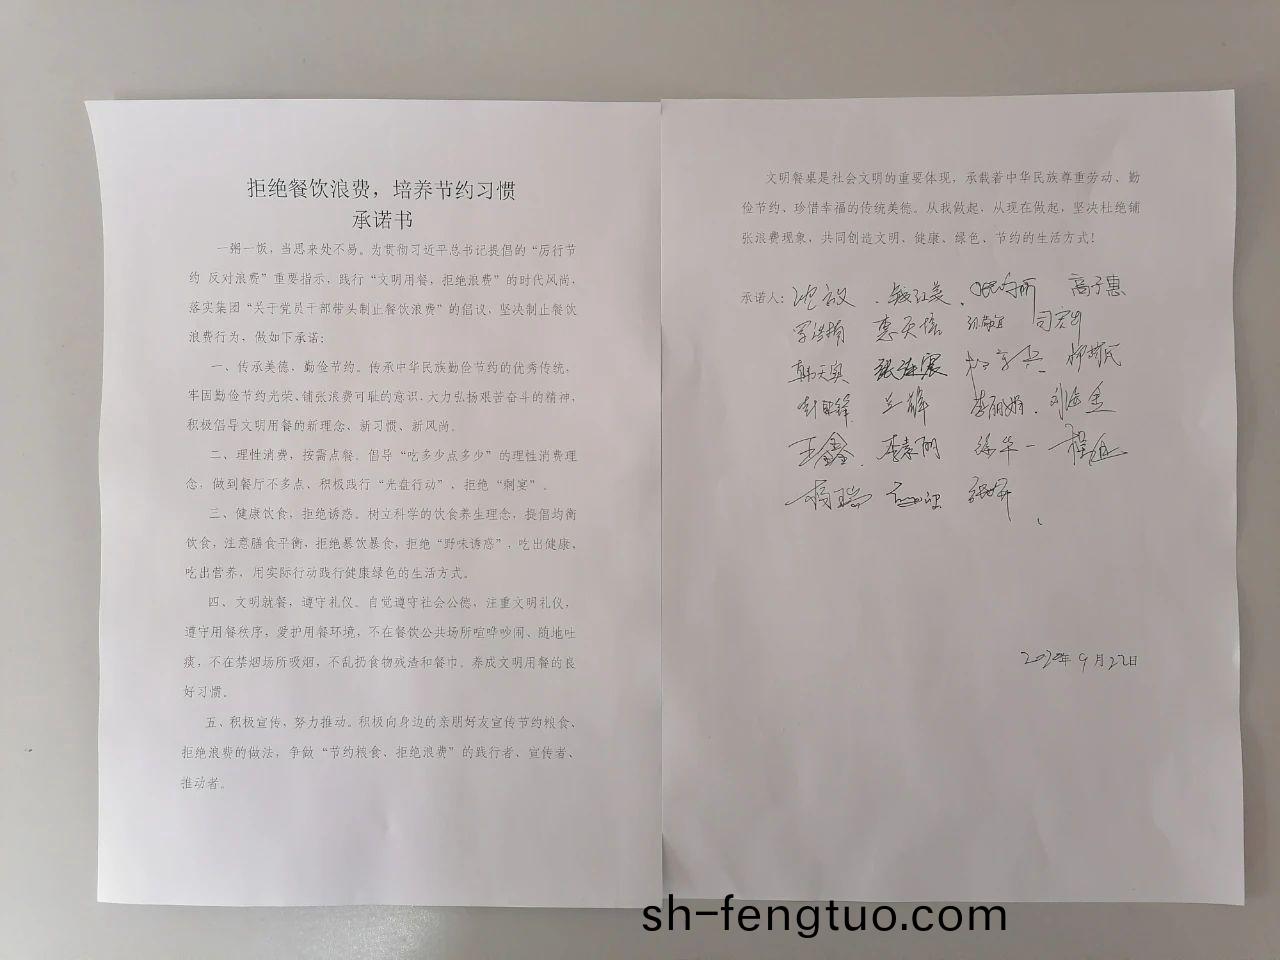 拒绝餐饮浪费，培养节约习惯
承诺书
一粥一饭，当思来处不易。为贯彻习近平总书记提倡的“厉行节
约 反对浪费”重要指示，践行“文明用餐，拒绝浪费”的时代风尚，
落实集团“关于党员干部带头制止餐饮浪费”的倡议，坚决制止餐饮
浪费行为，做如下承诺：
一、传承美德，勤俭节约。传承中华民族勤俭节约的优秀传统，
牢固勤俭节约光荣、铺张浪费可耻的意识，大力弘扬艰苦奋斗的精神，
积极倡导文明用餐的新理念、新习惯、新风尚。
二、理性消费，按需点餐。倡导“吃多少点多少”的理性消费理
念，做到餐厅不多点、积极践行“光盘行动”、拒绝“剩宴”。
三、健康饮食，拒绝诱惑。树立科学的饮食养生理念，提倡均衡
饮食，注意膳食平衡，拒绝暴饮暴食，拒绝“野味诱惑”，吃出健康，
吃出营养，用实际行动践行健康绿色的生活方式。
四、文明就餐，遵守礼仪。自觉遵守社会公德，注重文明礼仪，
遵守用餐秩序，爱护用餐环境，不在餐饮公共场所喧哗吵闹、随地吐
痰，不在禁烟场所吸烟，不乱扔食物残渣和餐巾。养成文明用餐的良
好习惯。
五、积极宣传，努力推动。积极向身边的亲朋好友宣传节约粮食、
拒绝浪费的做法，争做“节约粮食、拒绝浪费”的践行者、宣传者、
推动者。
文明餐桌是社会文明的重要体现，承载着中华民族尊重劳动、勤
俭节约、珍惜幸福的传统美德。从我做起，从现在做起，坚决杜绝铺
张浪费现象，共同创造文明、健康、绿色、节约的生活方式！
承诺人： 高子惠
韩天奥
李丽娟
王鑫 李素丽
杨瑞
2020年9月22日
sh-fengtuo.com